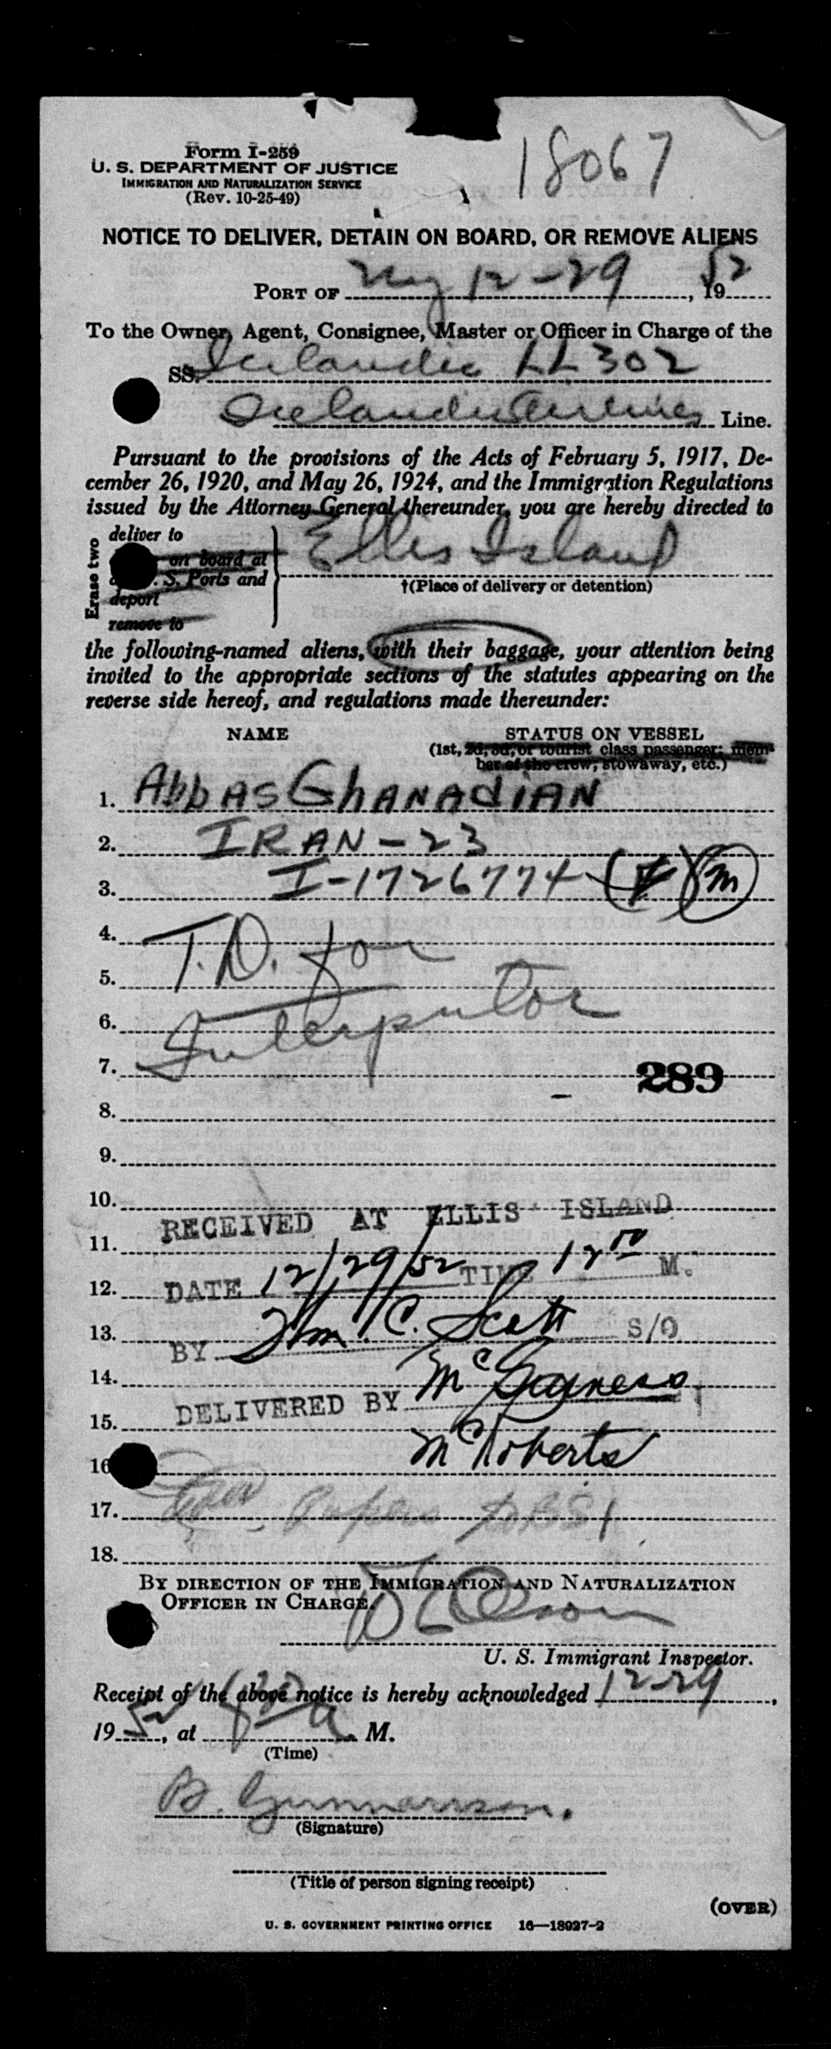 Form I-259
U. S. DEPARTMENT OF JUSTICE
IMMIGRATION AND NATURALIZATION SERVICE
(Rev. 10-25-49)
18067
NOTICE TO DELIVER, DETAIN ON BOARD, OR REMOVE ALIENS
PORT OF NY 12-29, 1952
To the Owner, Agent, Consignee, Master or Officer in Charge of the
SS. Icelandic LL302
Icelandic Airlines Line.
Pursuant to the provisions of the Acts of February 5, 1917, De-
cember 26, 1920, and May 26, 1924, and the Immigration Regulations
issued by the Attorney General thereunder, you are hereby directed to
Erase two
deliver to
on board at
S. Ports and
deport
remove to
Ellis Island
†(Place of delivery or detention)
the following-named aliens, with their baggage, your attention being
invited to the appropriate sections of the statutes appearing on the
reverse side hereof, and regulations made thereunder:
NAME STATUS ON VESSEL
(1st, 2d, 3d, or tourist class passenger; mem-
ber of the crew, stowaway, etc.)
1. Abbas Ghanadian
2. IRAN-23
3. I-1726774 (m)
4. T.D. for
5.
6. Interputor
7.
289
8.
9.
10.
RECEIVED AT ELLIS ISLAND
11.
12. DATE 12/29/52 TIME 12 M.
13.
BY Wm. C. Scott S/O
14.
DELIVERED BY
15.
McRoberts
16
17. Papers to BSI
18.
BY DIRECTION OF THE IMMIGRATION AND NATURALIZATION
OFFICER IN CHARGE.
U. S. Immigrant Inspector.
Receipt of the above notice is hereby acknowledged 12-29,
1952, at M.
(Time)
B. Gunnarsson.
(Signature)
(Title of person signing receipt)
(OVER)
U. S. GOVERNMENT PRINTING OFFICE 16—18027-2